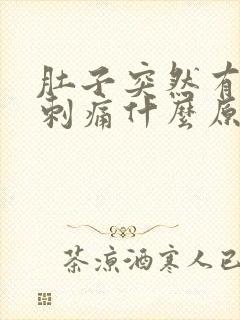 肚子突然有
刺痛什麼原
茶涼酒寒人已